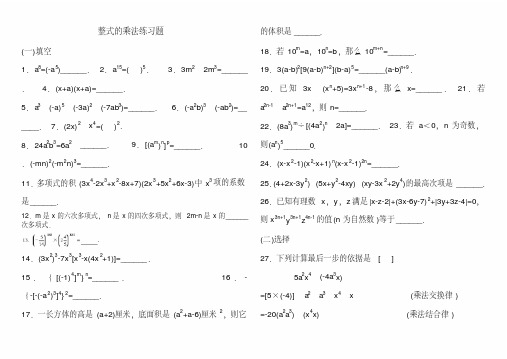 整式的乘法练习题
(一)填空
1. a⁸=(-a⁵)______. 2. a¹⁵=( )⁵. 3. 3m² 2m³=______
. 4. (x+a)(x+a)=______.
5. a³ (-a)⁵ (-3a)² (-7ab³)=______. 6. (-a²b)³ (-ab²)=__
____. 7. (2x)² x⁴=( )².
8. 24a²b³=6a² ______. 9. [(aᵐ)ⁿ]ᵖ=______. 10
. (-mn)²(-m²n)³=______.
11. 多项式的积 (3x⁴-2x³+x²-8x+7)(2x³+5x²+6x-3)中 x³项的系数
是______.
12. m 是 x 的六次多项式, n 是 x 的四次多项式, 则 2m-n 是 x 的______
次多项式.
14. (3x²)³-7x³[x³-x(4x²+1)]=______.
15. {[(-1)⁴]ᵐ}ⁿ=______. 16. -
{-[-(-a²)³]⁴}²=______.
17. 一长方体的高是 (a+2)厘米, 底面积是 (a²+a-6)厘米², 则它
的体积是 ______.
18. 若 10ᵐ=a, 10ⁿ=b, 那么 10ᵐ⁺ⁿ=______.
19. 3(a-b)²[9(a-b)ⁿ⁺²](b-a)⁵=______(a-b)ⁿ⁺⁹.
20. 已知 3x (xⁿ+5)=3xⁿ⁺¹-8, 那么 x=______. 21. 若
a²ⁿ⁻¹ a²ⁿ⁺¹=a¹², 则 n=______.
22. (8a³)ᵐ÷[(4a²)ⁿ 2a]=______. 23. 若 a<0, n 为奇数,
则(aⁿ)⁵______0.
24. (x-x²-1)(x²-x+1)ⁿ(x-x²-1)²ⁿ=______.
25. (4+2x-3y²) (5x+y²-4xy) (xy-3x²+2y⁴)的最高次项是 ______.
26. 已知有理数 x, y, z 满足|x-z-2|+(3x-6y-7)²+|3y+3z-4|=0,
则 x³ⁿ⁺¹y³ⁿ⁺¹z⁴ⁿ⁻¹ 的值(n 为自然数 )等于______.
(二)选择
27. 下列计算最后一步的依据是 [ ]
5a²x⁴ (-4a³x)
=[5×(-4)] a² a³ x⁴ x (乘法交换律 )
=-20(a²a³) (x⁴x) (乘法结合律 )